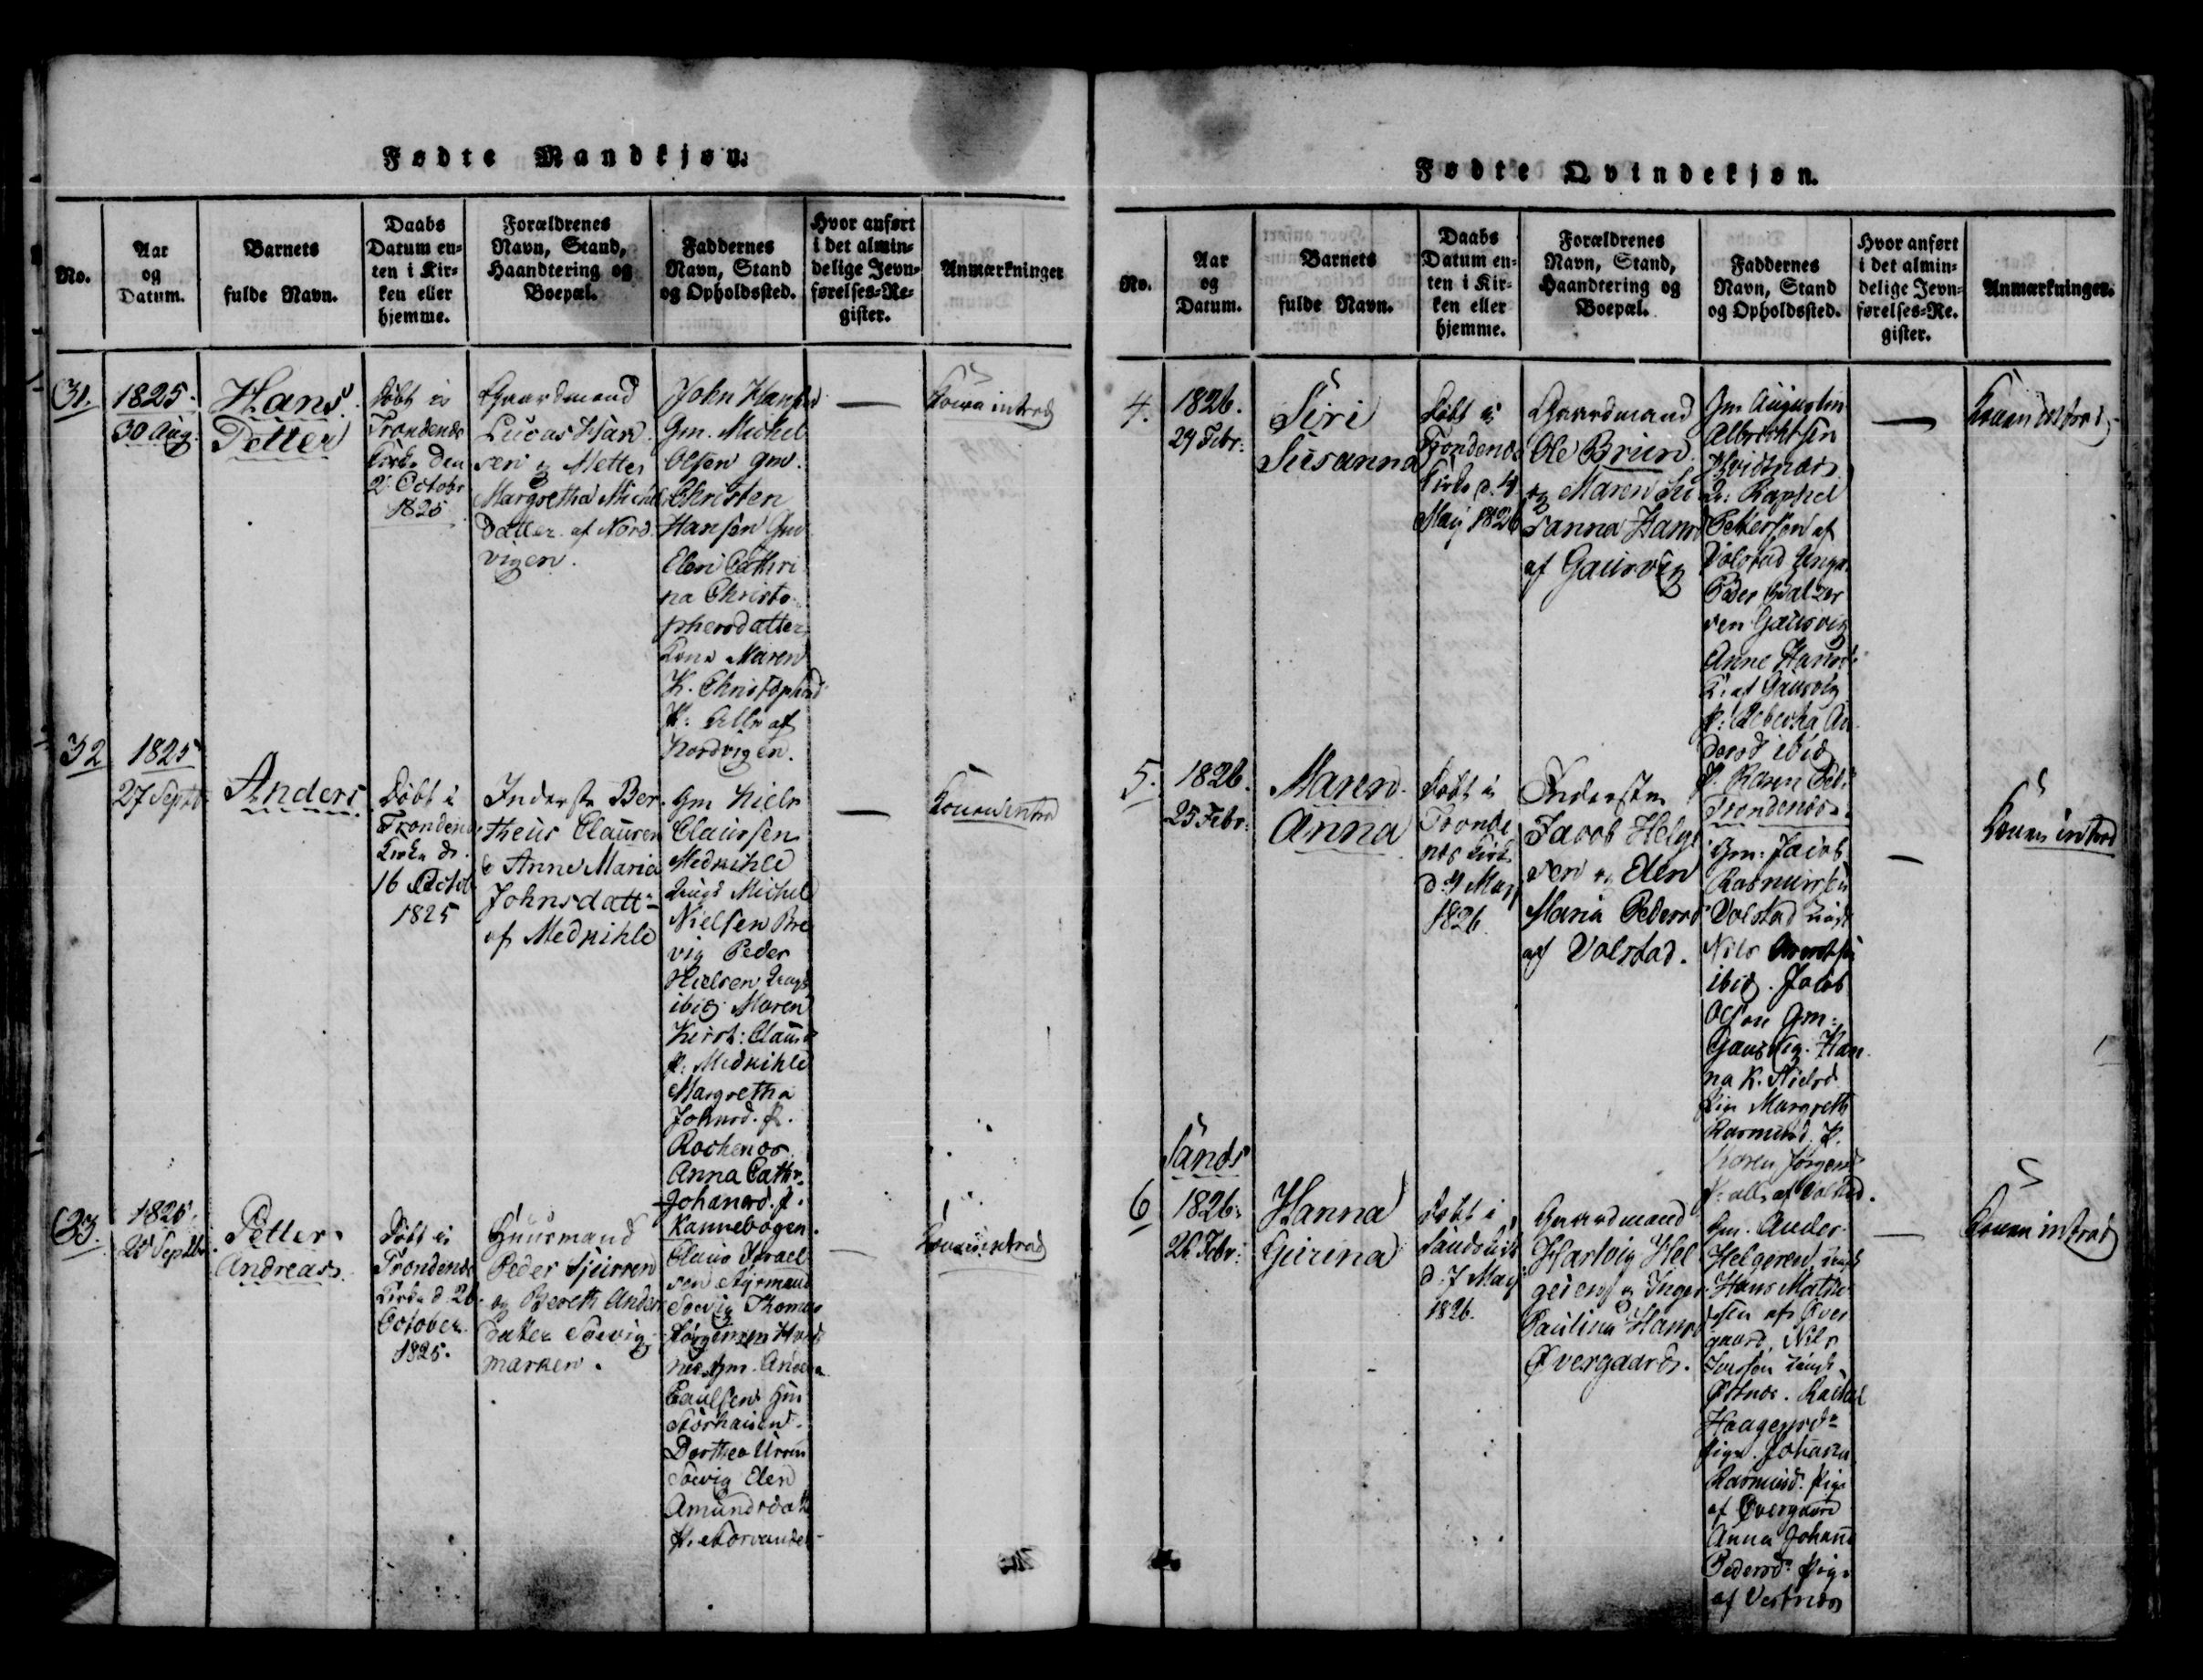 Fødte Mandkjøn.
No.
Aar
og
Datum.
Barnets
fulde Navn.
Daabs
Datum en-
ten i Kir-
ken eller
hjemme.
Forældrenes
Navn, Stand,
Haandtering og
Boepæl.
Faddernes
Navn, Stand
og Opholdssted.
Hvor anført
i det almin-
delige Jevn-
førelses-Re-
gister.
Anmærkninger
31.
1825.
30 Aug.
Hans
Petter
Døbt i
Trondenæs
Kirke den
2 Octobr
1825
Gaardmand
Lucas Han
sen og Mette
Margretha Michel
datter af Nord
vigen.
John Hansen
Gm. Michel
Olsen Gm.
Christen
Hansen Gm
Elen Cathri
na Christo-
phersdatter
Kone Maren
K. Christophersd
P: Alle af
Nordvigen.
—
Konen introd
32
1825
27 Septb
Anders
Døbt i
Trondenæs
Kirke d.
16 Octob
1825
Inderste Ber
theus Clausen
& Anne Maria
Johnsdatt-
af Medkihle
Gm Niels
Claussen
Medkihle
Ungk Michel
Nielsen Bre
vig Peder
Nielsen Ungk
ibid. Maren
Kirst: Clausd
P: Medkihle
Margretha
Johnsd. P.
Rochenæs
Anna Cathr.
Johansd. P.
Kannebogen.
—
Konen introd
33.
1825.
28 Septbr.
Petter
Andreas.
Døbt i
Trondenæs
Kirke d. 26
October
1825.
Huusmand
Peder Sjursen
og Bereth Anders
datter Sørvig-
marken.
Claus Israel
sen Styrmand
Sørvig Thomas
Jørgensen Hved
næs Gm. Anders
Paulsen Gm
Storhaugen.
Dorthea Ursin
Sørvig Elen
Amundsdatt
P. Storvandet
—
Konen introd
Fødte Qvindekjøn.
No.
Aar
og
Datum.
Barnets
fulde Navn.
Daabs
Datum en-
ten i Kir-
ken eller
hjemme.
Forældrenes
Navn, Stand,
Haandtering og
Boepæl.
Faddernes
Navn, Stand
og Opholdssted.
Hvor anført
i det almin-
delige Jevn-
førelses-Re.
gister.
Anmærkninger.
4.
1826.
24 Febr:
Siri
Susanna
Døbt i
Trondenæs
Kirke d. 4
May 1826
Gaardmand
Ole Brun
og Maren Su
sanna Hansd
af Gausvig
Gm Augustin
Albrichtsen
Hvidnæs
Raphel
Pettersen af
Volstad Ungk.
Peder Balzer
sen Gausvig
Anne Hansd:
K: af Gausvig
P: Rebecka An
dersd ibid
P. Karen Ped:
Trondenæs.
—
Konen introd
5.
1826.
25 Febr:
Maren
Anna
Døbt i
Tronde
næs Kirke
d. 4 May
1826.
Inderste
Jacob Helge
sen og Elen
Maria Pedersd
af Volstad.
Gm: Jacob
Rasmussen
Volstad Ungk
Nils Arentsen
ibid. Jacob
Olsen Gm:
Gausvig. Han
na K. Nielsd
Margreth
Rasmusd. P.
Karen Jørgensd
P: alle af Volstad.
—
Konen introd
Sands
6
1826.
26 Febr:
Hanna
Gurina
Døbt i
Sands Kirke
d. 7 May
1826.
Gaardmand
Hartvig Hel
gesen og Inger
Paulina Hansd
Øvergaard.
Gm. Anders
Helgesen, Ungk
Hans Mathi
sen af Øver
gaard, Nils
Ungk.
Østnæs. Rachel
Haagensd:
Pige. Johana
Rasmusd. Pige
af Øvergaard
Anna Johana
Pedersd: Pige
af Vestnæs
—
Konen introd